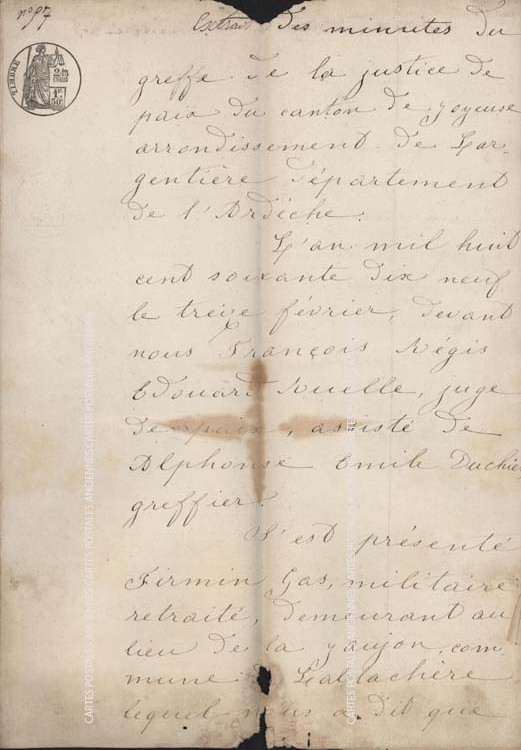 n° 97
TIMBRE
Extrait des minutes du
greffe de la justice de
paix du canton de Joyeuse
arrondissement de Lar-
gentière département
de l'Ardèche.
L'an mil huit
cent soixante dix neuf
le treize février, devant
nous François Régis
Edouard Ruelle, juge
de paix, assisté de
Alphonse Emile Duchier
greffier.
S'est présenté
Firmin Gas, militaire
retraité, demeurant au
lieu de la yaujon, com-
mune de Lablachère
lequel nous a dit que
CARTES POSTALES ANCIENNES CARTES POSTALES ANCIENNES